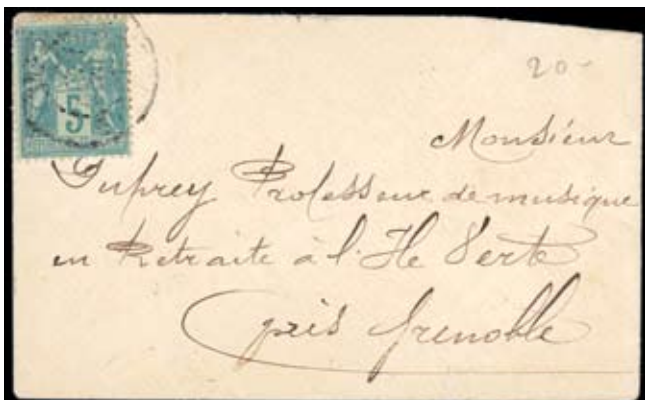 5
20-
Monsieur
Duprey Professeur de musique
en Retraite à l'Ile Verte
près Grenoble